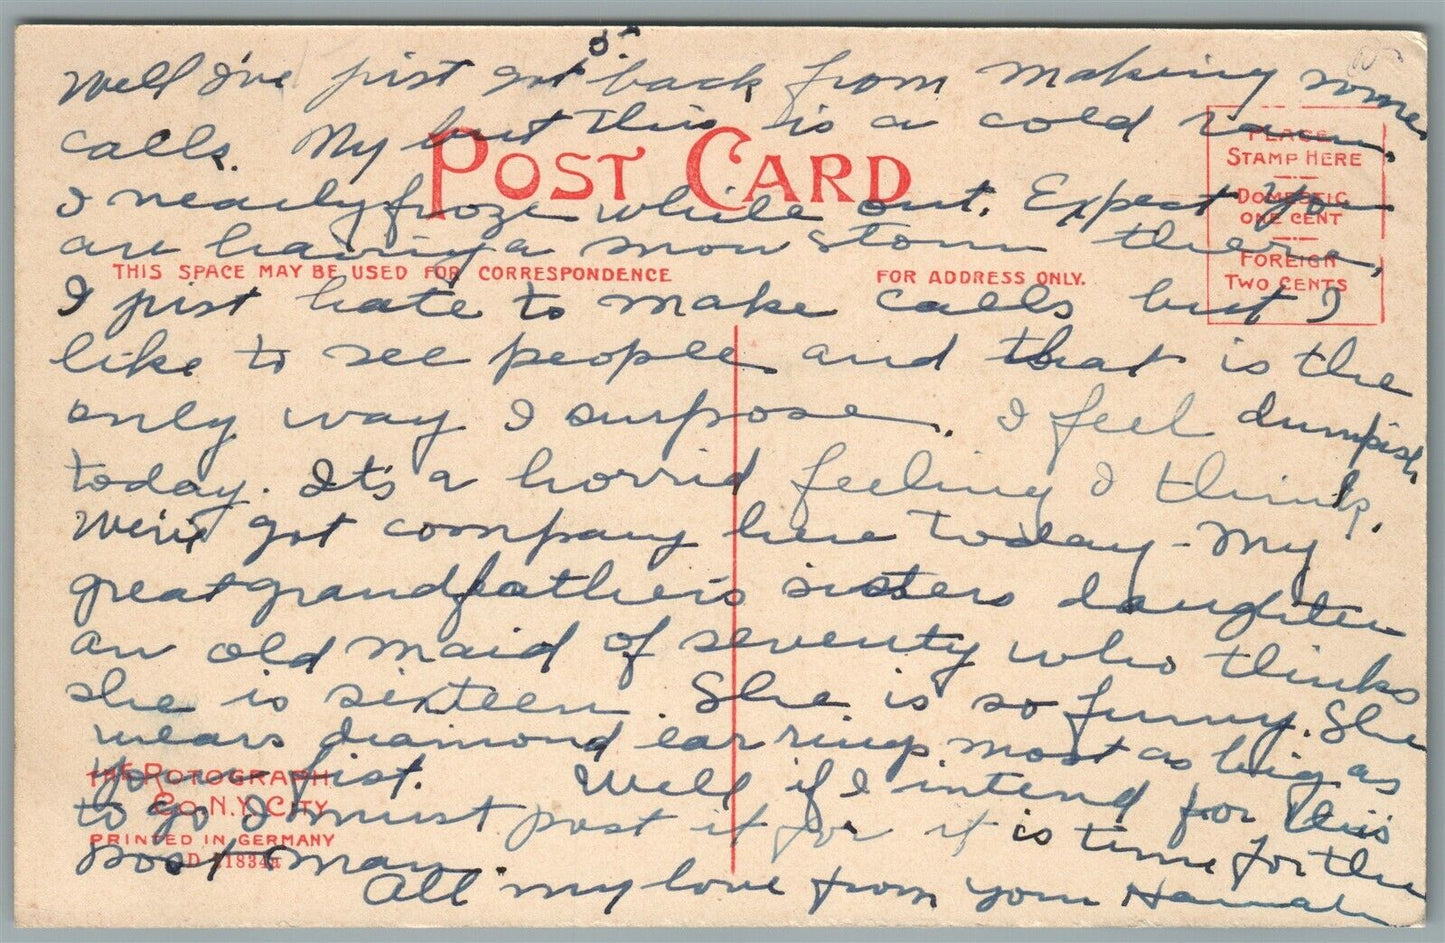 5.
Well I've just got back from making some
calls. My but this is a cold
POST CARD
PLACE
STAMP HERE
DOMESTIC
ONE CENT
FOREIGN
TWO CENTS
I nearly froze while out. Expect you
are having a snow storm there,
THIS SPACE MAY BE USED FOR CORRESPONDENCE
FOR ADDRESS ONLY.
I just hate to make calls but I
like to see people and that is the
only way I suppose. I feel dumpish
today. It's a horrid feeling I think.
We've got company here today - My
greatgrandfather's sisters daughter
an old maid of seventy who thinks
she is sixteen. She is so funny. She
wears diamond earrings most as big as
your fist. Well if I intend for this
to go I must post it for it is time for the
post man.
All my love from your Hannah
THE ROTOGRAPH
CO. N.Y. CITY
PRINTED IN GERMANY